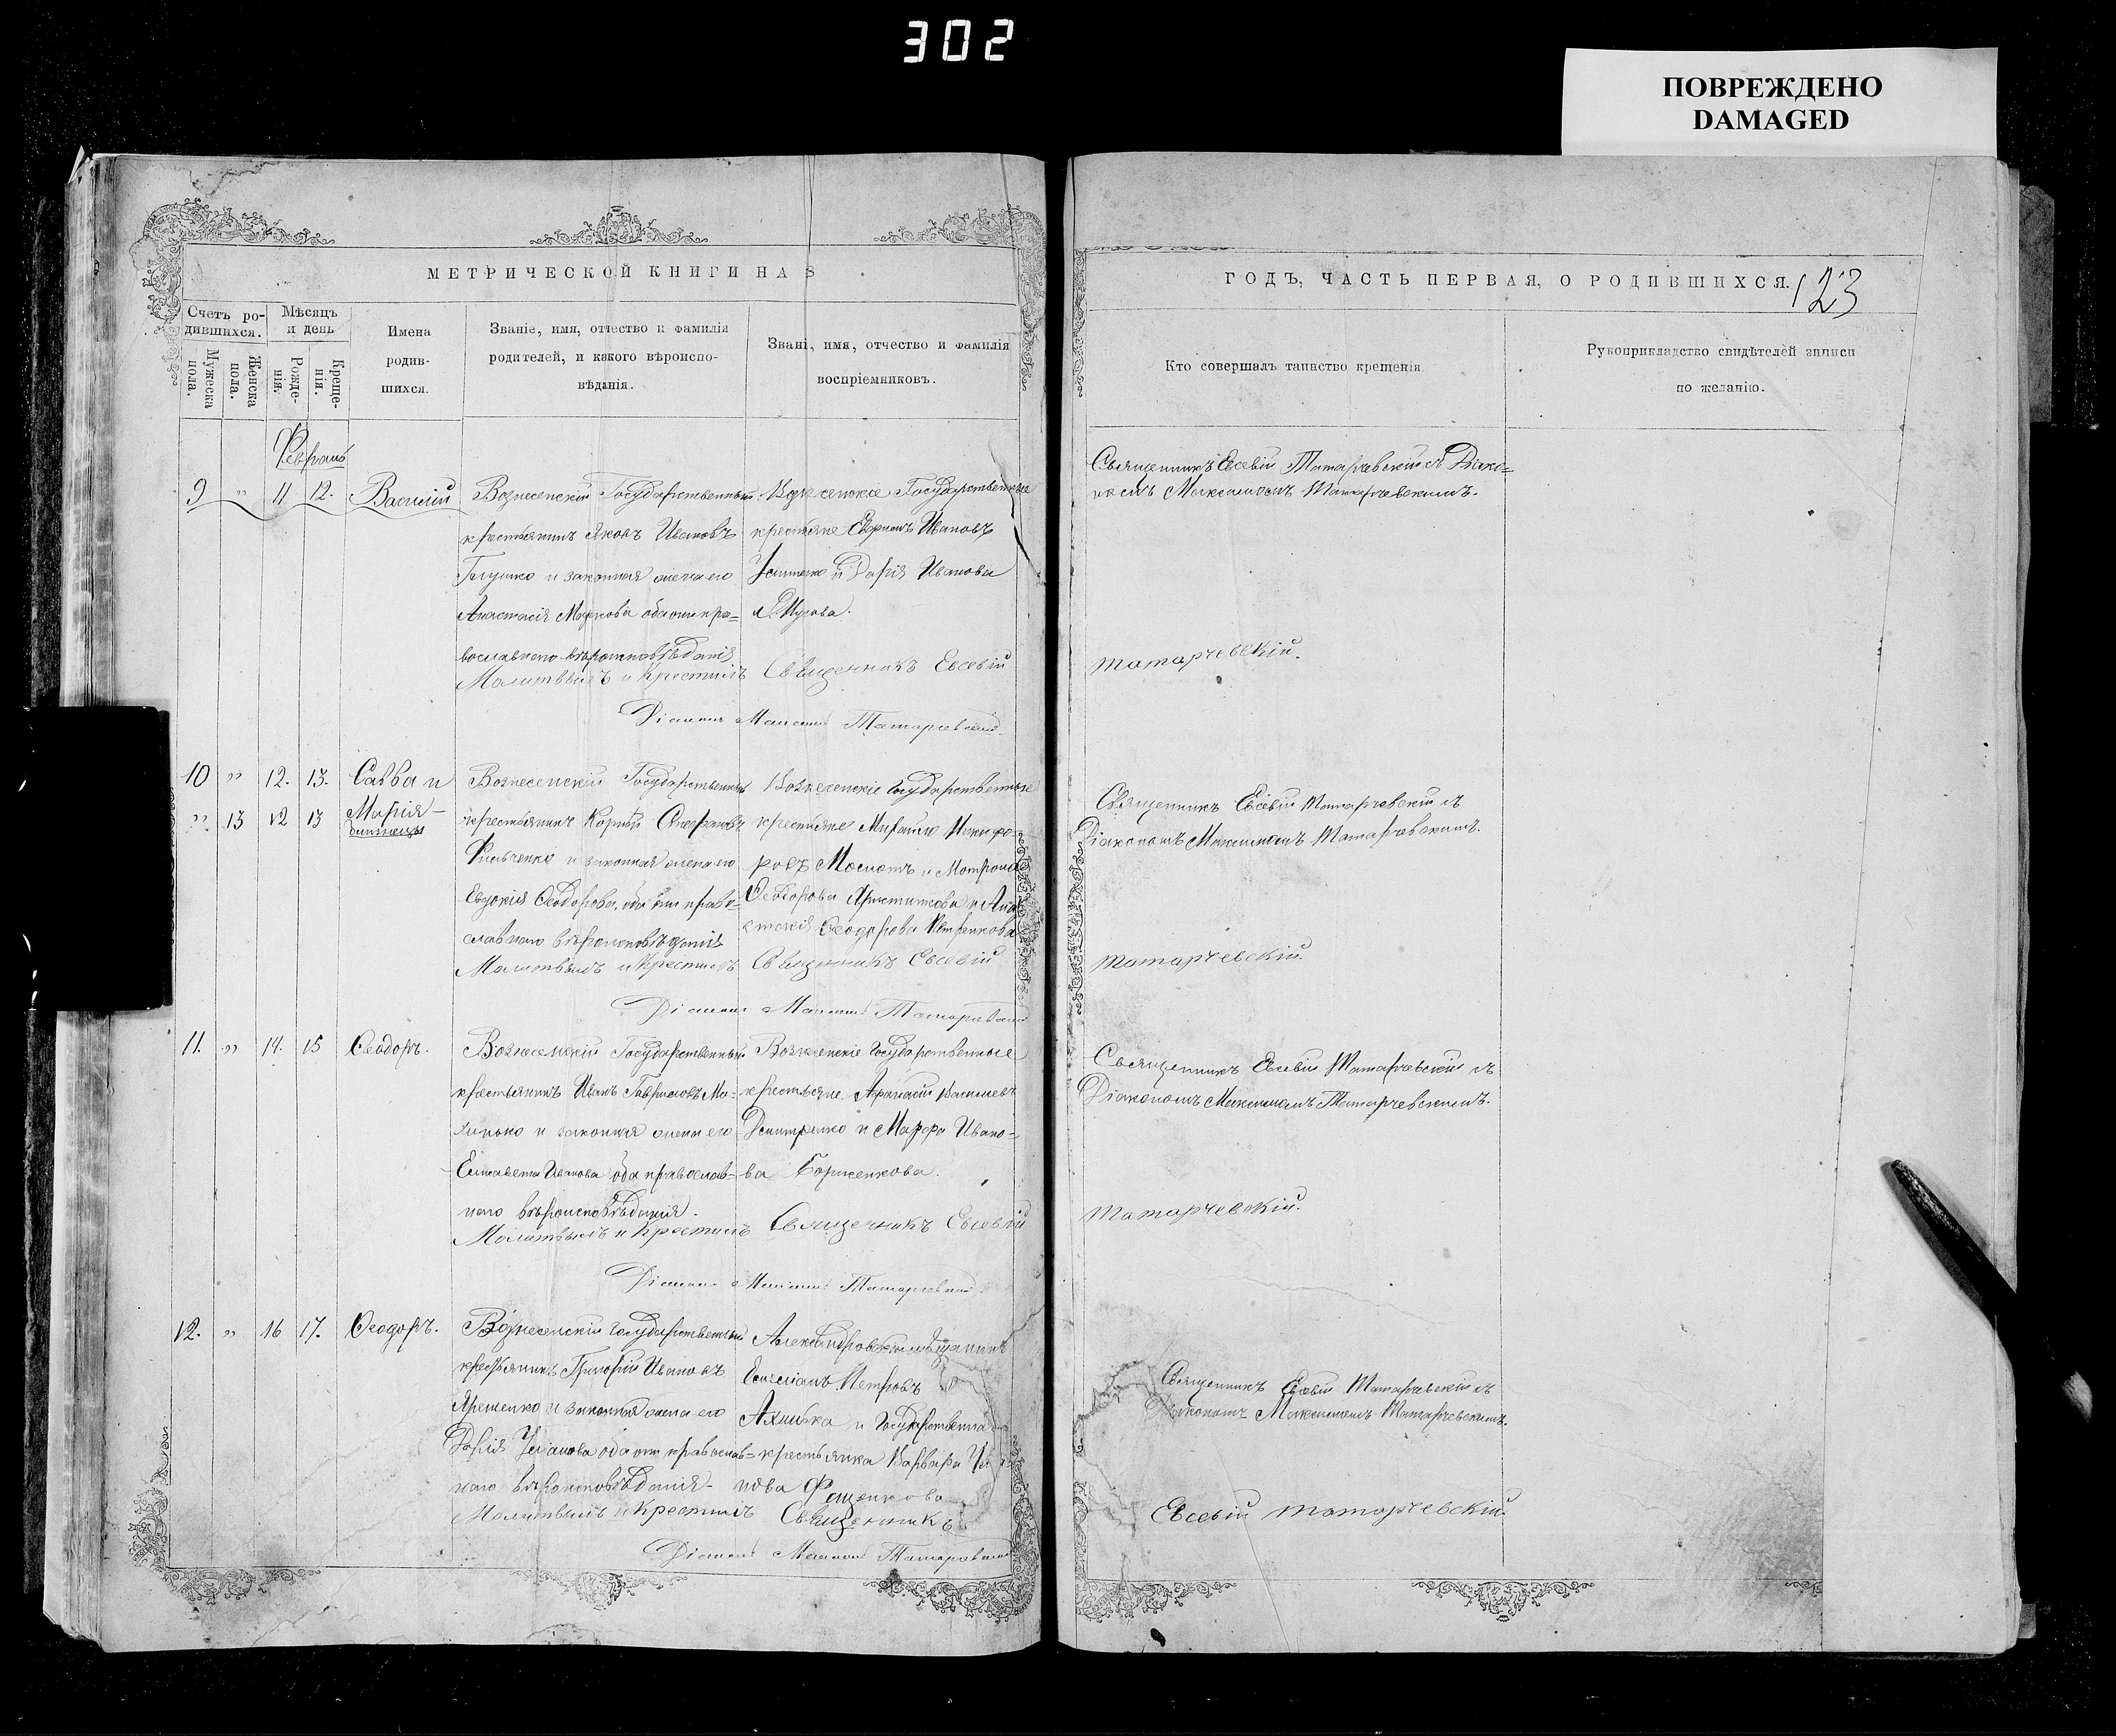 302
ПОВРЕЖДЕНО
DAMAGED
МЕТРИЧЕСКОЙ КНИГИ НА
ГОДЪ, ЧАСТЬ ПЕРВАЯ, О РОДИВШИХСЯ.
123
Счетъ ро-
дившихся.
Мужеска
пола.
Женска
пола.
Мѣсяцъ
и день
Рожде-
нія.
Креще-
нія.
Имена
родив-
шихся.
Званіе, имя, отчество и фамилія
родителей, и какого вѣроиспо-
вѣданія.
Звані, имя, отчество и фамилія
воспріемниковъ.
Кто совершалъ таинство крещенія
Рукоприкладство свидѣтелей записи
по желанію.
Февраль
9 " 11 12. Василій
Вознесенскій Государственный
крестьянинъ Яковъ Ивановъ
Глушко и законная жена его
Анастасія Маркова оба они пра=
вославнаго вѣроисповѣданія
Вознесенскіе Государственные
крестьяне Ивановъ
и Дарія Иванова
Священникъ Евсевій Татарчевскій съ Діако=
номъ Максимомъ Татарчевскимъ.
Молитвилъ и Крестилъ Священникъ Евсевій
татарчевскій.
Діаконъ Максимъ Татарчевскій.
10 " 12. 13. Савва и
" 13 12 13 Марія -
близнецы
Вознесенскій Государственный
крестьянинъ Корній Стефановъ
и законная жена его
Евдокія Ѳеодорова, оба они право=
славнаго вѣроисповѣданія
Вознесенскіе Государственные
крестьяне Никифо=
ровъ и Матрона
Ѳеодорова и Ана
стасія Ѳеодорова
Священникъ Евсевій Татарчевскій съ
Діакономъ Максимомъ Татарчевскимъ.
Молитвилъ и Крестилъ Священникъ Евсевій
татарчевскій.
Діаконъ Максимъ Татарчевскій
11. " 14. 15 Ѳеодоръ.
Вознесенскій Государственный
крестьянинъ Иванъ Гавриловъ Ма=
и законная жена его
Елисавета Иванова оба православ=
наго вѣроисповѣданія.
Вознесенскіе Государственные
крестьяне Афанасій Васильевъ
Дмитренко и Марфа Ивано=
ва Борисенкова.
Священникъ Евсевій Татарчевскій съ
Діакономъ Максимомъ Татарчевскимъ.
Молитвилъ и Крестилъ Священникъ Евсевій
татарчевскій.
Діаконъ Максимъ Татарчевскій
12. " 16 17. Ѳеодоръ.
Вознесенскій Государственный
крестьянинъ Григорій Ивановъ
Яременко и законная жена его
Дарія оба они православ=
наго вѣроисповѣданія-
Александровскій мѣщанинъ
Петровъ
и Государственна
крестьянка Варвара
нова
Священникъ Евсевій Татарчевскій съ
Діакономъ Максимомъ Татарчевскимъ.
Молитвилъ и Крестилъ Священникъ
Евсевій татарчевскій
Діаконъ Максимъ Татарчевскій